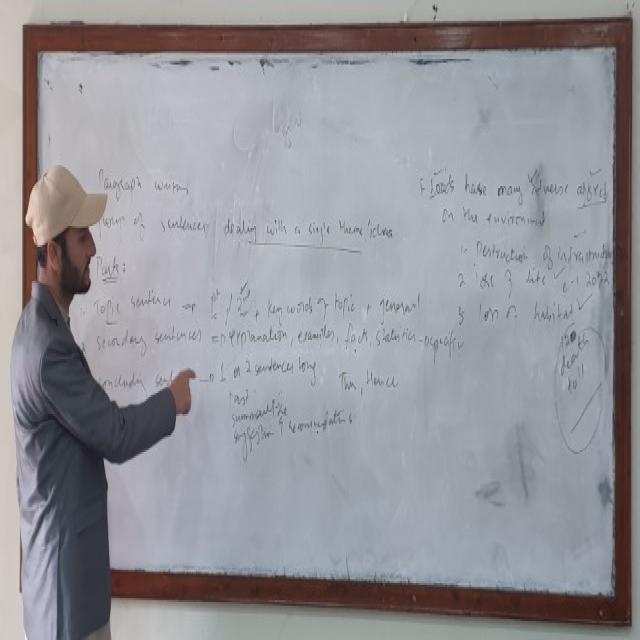 Paragraph writing
of sentences dealing with a single theme/idea
Parts:
Topic sentence → 1st / + key words of topic + general
secondary sentences ⇒ explanation, examples, facts, statistics - specific
→ 1 or 2 sentences long Thus, Hence
last
summarize
suggestion / recommendations
Floods have many adverse effects
on the environment
1. Destruction of infrastructure
2 loss of life
3 loss of habitat
death
toll